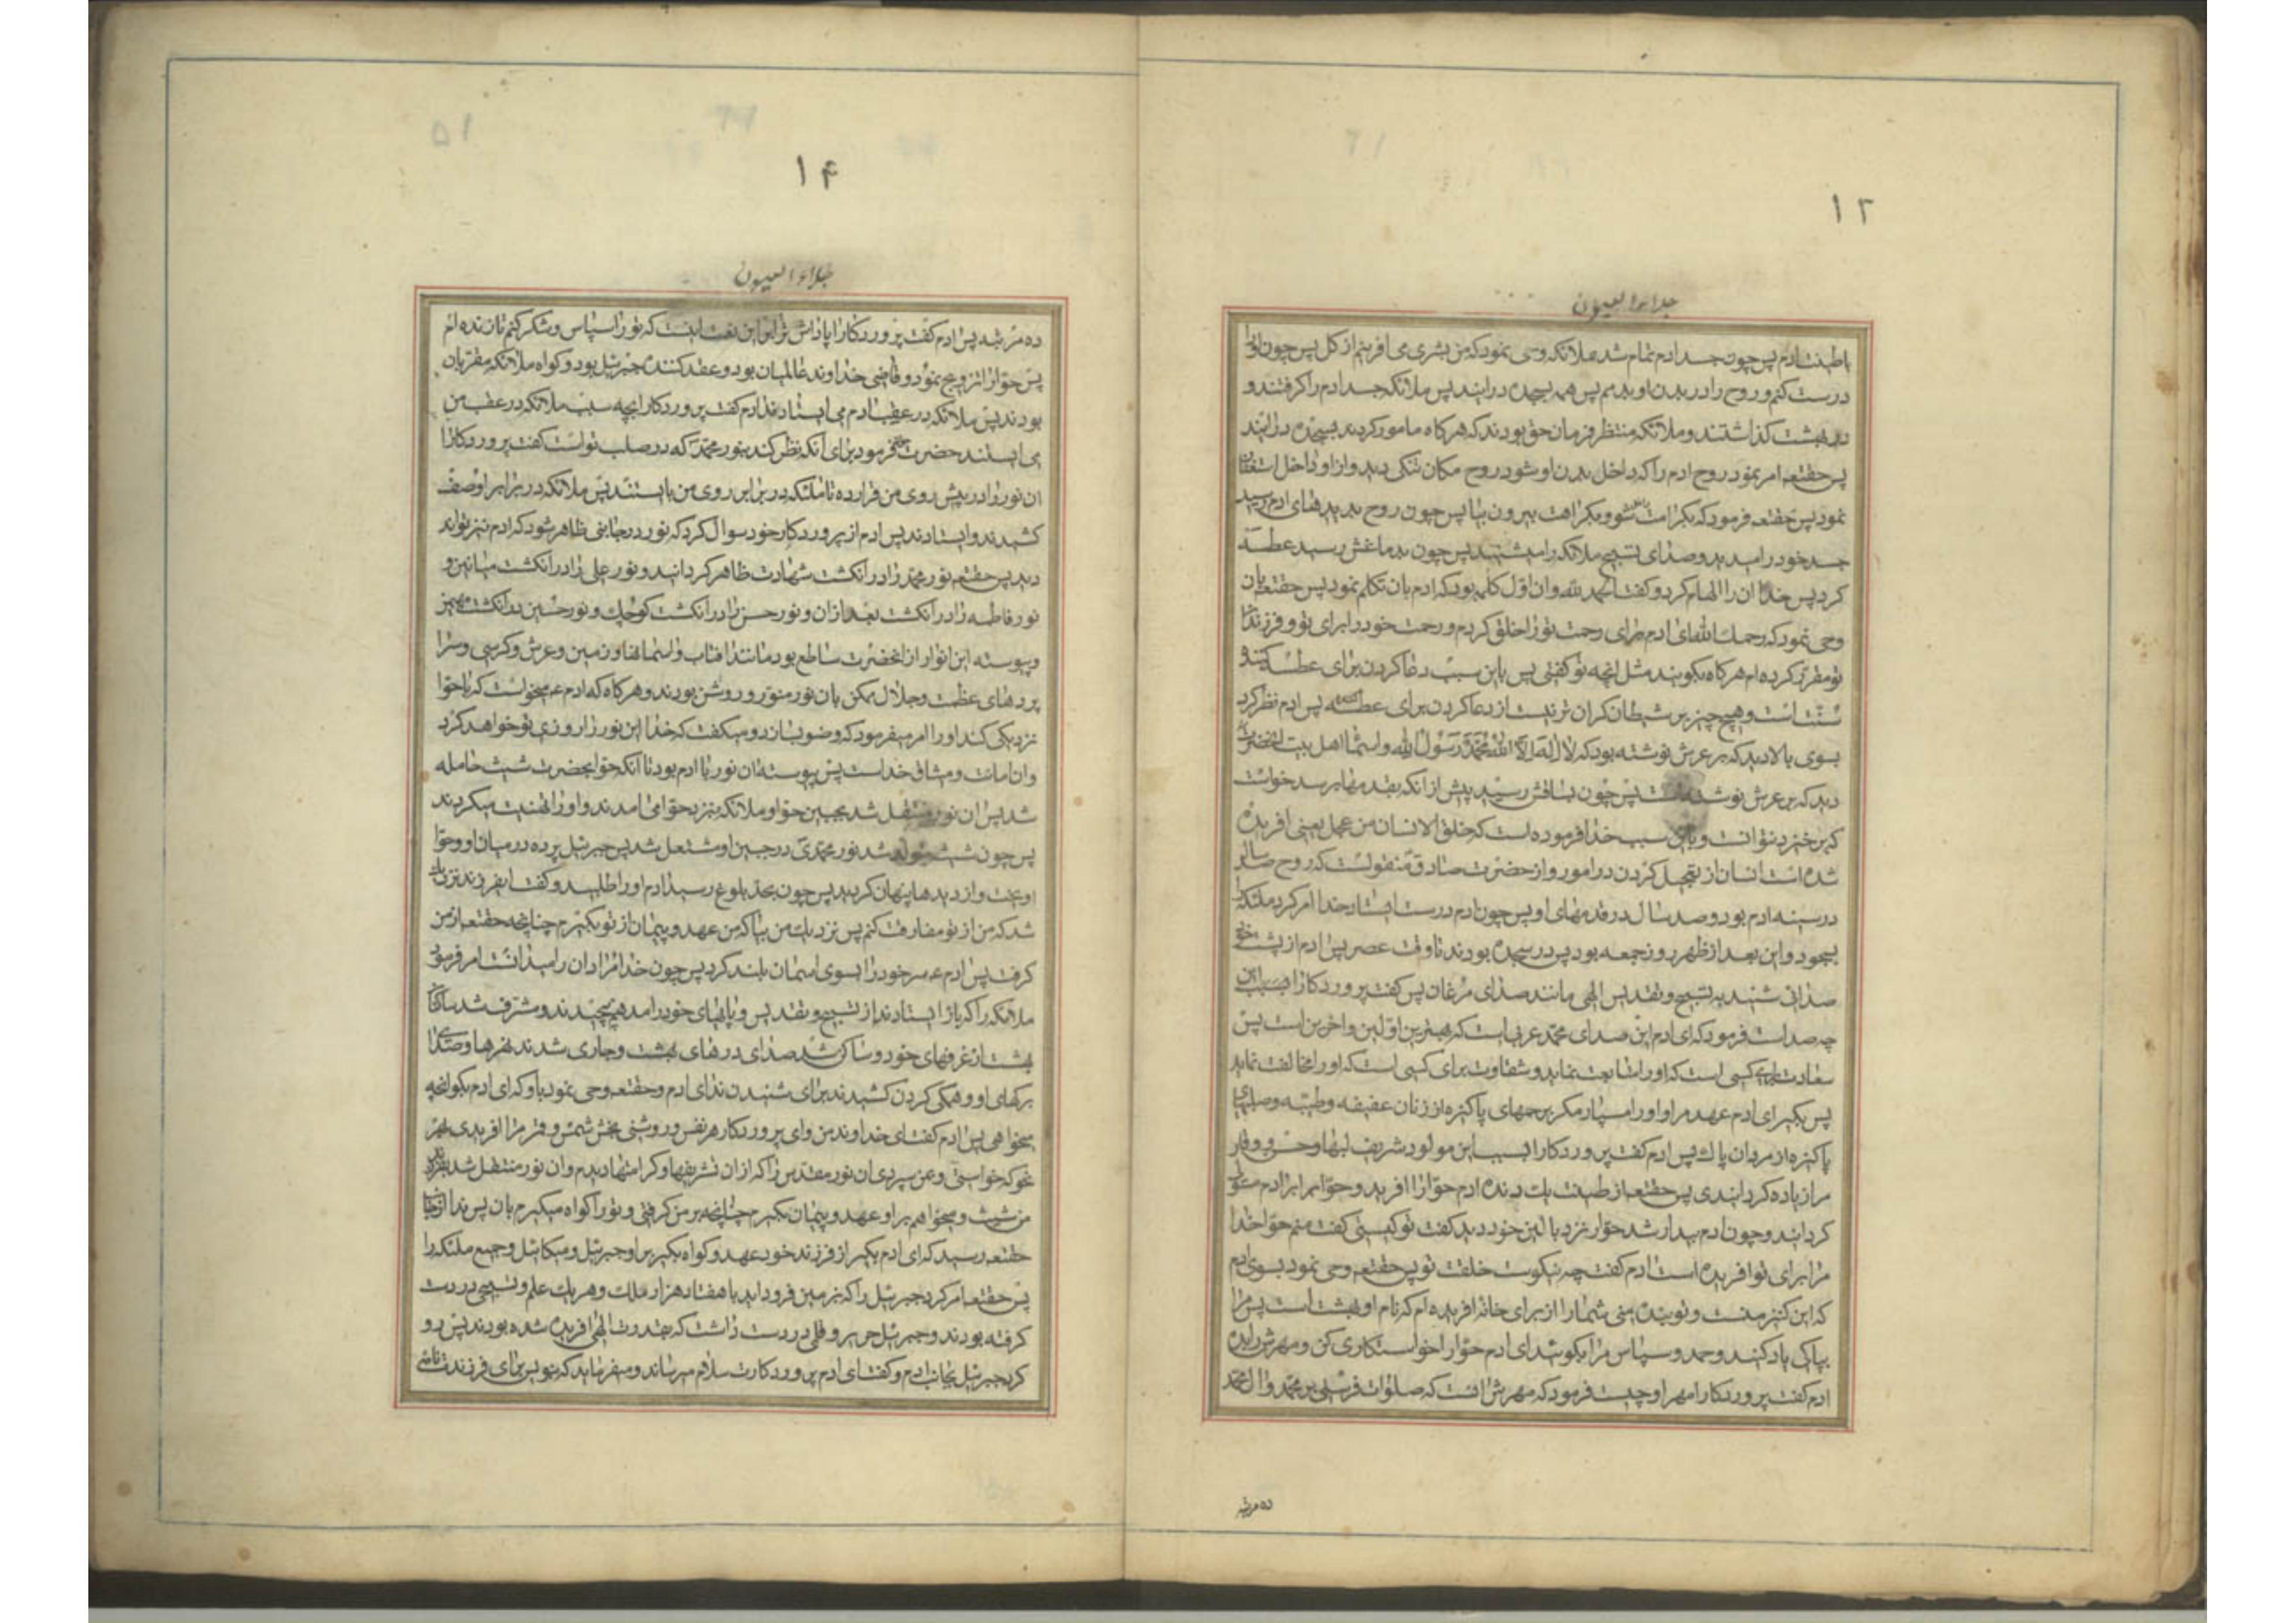 ۱۳
جلاء العیون
باطینت ادم پس چون جسد ادم تمام شد بملائکه وحی نمود که من بشری می افرینم از کل پس چون او را
درست کنم و روح را در بدن او بدمم پس همه بسجده درایند پس ملائکه جسد ادم را کرفتند و
در بهشت کذاشتند و ملائکه منتظر فرمان حق بودند که هرکاه مامور کردند بسجده درایند
پس حقتعه امر نمود روح ادم را که داخل بدن او شود روح مکان تنکی دید و از او داخل استغفا
نمود پس حقتعه فرمود که بکراهت شو و بکراهت بیرون بیا پس چون روح بدیدهای ادم رسید
جسد خود را میدید و صدای تسبیح ملائکه را میشنید پس چون بدماغش رسید عطسه
کرد پس خدا ان را الهام کرد و کفت الحمد لله و ان اول کلمه بود که ادم بان تکلم نمود پس حقتعه بان
وحی نمود که رحمک الله ای ادم برای رحمت تو را خلق کردم و رحمت خود را برای تو و فرزندان
تو مقرر کرده ام هرکاه بکویند مثل انچه تو کفتی پس باین سبب دعا کردن برای عطسه کننده
سنت است و هیچ چیز بر شیطان کران تر نیست از دعا کردن برای عطسه کننده پس ادم نظر کرد
بسوی بالا دید که بر عرش نوشته بود که لا اله الا الله محمد رسول الله و اسماء اهل بیت انحضرت
دید که بر عرش نوشته است پس چون بساقش رسید پیش از انکه بقدمها برسد خواست
که برخیزد نتوانست و باین سبب خدا فرموده است که خلق الانسان من عجل یعنی افریده
شده است انسان از تعجیل کردن در امور و از حضرت صادق منقولست که روح صد سال
در سینه ادم بود و صد سال در قدمهای او پس چون ادم درست ایستاد خدا امر کرد ملئکه را
بسجود و این بعد از ظهر روز جمعه بود پس در سجده بودند تا وقت عصر پس ادم از پشت خود
صدائی شنید به تسبیح و تقدیس الهی مانند صدای مرغان پس کفت پروردکارا این
چه صداست فرمود که ای ادم این صدای محمد عربی است که بهترین اولین و اخرین است پس
سعادت برای کسی است که او را متابعت نماید و شقاوت برای کسی است که او را مخالفت نماید
پس بکیر ای ادم عهد مرا و او را مسپار مکر برحمهای پاکیزه از زنان عفیفه و طیبه و صلبهای
پاکیزه از مردان پاک پس ادم کفت پروردکارا بسبب این مولود شریف بها و حسن و وقار
مرا زیاده کردانیدی پس حقتعه از طینت یک دنده ادم حوا را افرید و حوا بر ادم مستولی
کردانید و چون ادم بیدار شد حوا را نزد بالین خود دید کفت تو کیستی کفت منم حوا خدا
مرا برای تو افریده است ادم کفت چه نیکوست خلقت تو پس حقتعه وحی نمود بسوی ادم
که این کنیز منست و تو بنده منی شما را از برای خانه افریده ام که نام او بهشت است پس مرا
بپاکی یاد کنید و حمد و سپاس مرا بکوئید ای ادم حوا را خواستکاری کن و مهرش را بده
ادم کفت پروردکارا مهر او چیست فرمود که مهرش انست که صلوات فرستی بر محمد و ال محمد
ده مرتبه
۱۴
جلاء العیون
ده مرتبه پس ادم کفت پروردکارا پاداش تو بر این نعمت اینست که تو را سپاس و شکر کنم تا زنده ام
پس حوا را تزویج نمود و قاضی خداوند عالمیان بود و عقد کننده جبرئیل بود و کواه ملائکه مقربان
بودند پس ملائکه در عقب ادم می ایستادند ادم کفت پروردکارا بچه سبب ملائکه در عقب من
می ایستند حضرت فرمود برای انکه نظر کنند بنور محمد که در صلب تو است کفت پروردکارا
ان نور را در پیش روی من قرار ده تا ملئکه در برابر روی من بایستند پس ملائکه در برابر او صف
کشیدند و ایستادند پس ادم از پروردکار خود سوال کرد که نور در جائی ظاهر شود که ادم نیز تواند
دید پس حقتعه نور محمد را در انکشت شهادت ظاهر کردانید و نور علی را در انکشت میانین و
نور فاطمه را در انکشت بعد از ان و نور حسن را در انکشت کوچک و نور حسین در انکشت مهین
و پیوسته این انوار از انحضرت ساطع بود مانند افتاب و اسمانها و زمین و عرش و کرسی و سرا
پردهای عظمت و جلال ممکن بان نور منور و روشن بودند و هرکاه که ادم ع میخواست که با حوا
نزدیکی کند او را امر میفرمود که وضو بسازد و میکفت که خدا این نور را روزی تو خواهد کرد
و ان امانت و میثاق خداست پس پیوسته ان نور با ادم بود تا انکه حوا بحضرت شیث حامله
شد پس ان نور منتقل شد بجبین حوا و ملائکه بنزد حوا می امدند و او را تهنیت میکردند
پس چون شیث متولد شد نور محمدی در جبین او مشتعل شد پس جبرئیل پرده در میان او و حوا
اویخت و از دیدها پنهان کردید پس چون بحد بلوغ رسید ادم او را طلبید و کفت ای فرزند نزدیک
شد که من از تو مفارقت کنم پس نزدیک من بیا که من عهد و پیمان از تو بکیرم چنانچه حقتعه از من
کرفت پس ادم ع سر خود را بسوی اسمان بلند کرد پس چون خدا مراد ان را میدانست امر فرمود
ملائکه را که باز ایستادند از تسبیح و تقدیس و بالهای خود را در هم پیچیدند و مشرف شدند ساکنان
بهشت از غرفهای خود و ساکن شد صدای درهای بهشت و جاری شدن نهرها و صدای
برکهای او و همکی کردن کشیدند برای شنیدن ندای ادم و حقتعه وحی نمود باو که ای ادم بکو انچه
میخواهی پس ادم کفت ای خداوند من و ای پروردکار هر نفس و روشنی بخش شمس و قمر مرا افریدی بهر
نحو که خواستی و بمن سپردی ان نور مقدس را که از ان تشریفها و کرامتها دیدم و ان نور منتقل شد بفرزند
من شیث و میخواهم بر او عهد و پیمان بکیرم چنانچه بر من کرفتی و تو را کواه میکیرم بان پس ندا از جانب
حقتعه رسید که ای ادم بکیر از فرزند خود عهد و کواه بکیر بر او جبرئیل و میکائیل و جمیع ملئکه را
پس حقتعه امر کرد جبرئیل را که بزمین فرود اید با هفتاد هزار ملک و هر یک علم و تسبیحی در دست
کرفته بودند و جبرئیل حریر و قلمی در دست داشت که بقدرت الهی افریده شده بودند پس رو
کرد جبرئیل بجانب ادم و کفت ای ادم پروردکارت سلام میرساند و میفرماید که بنویس برای فرزندت